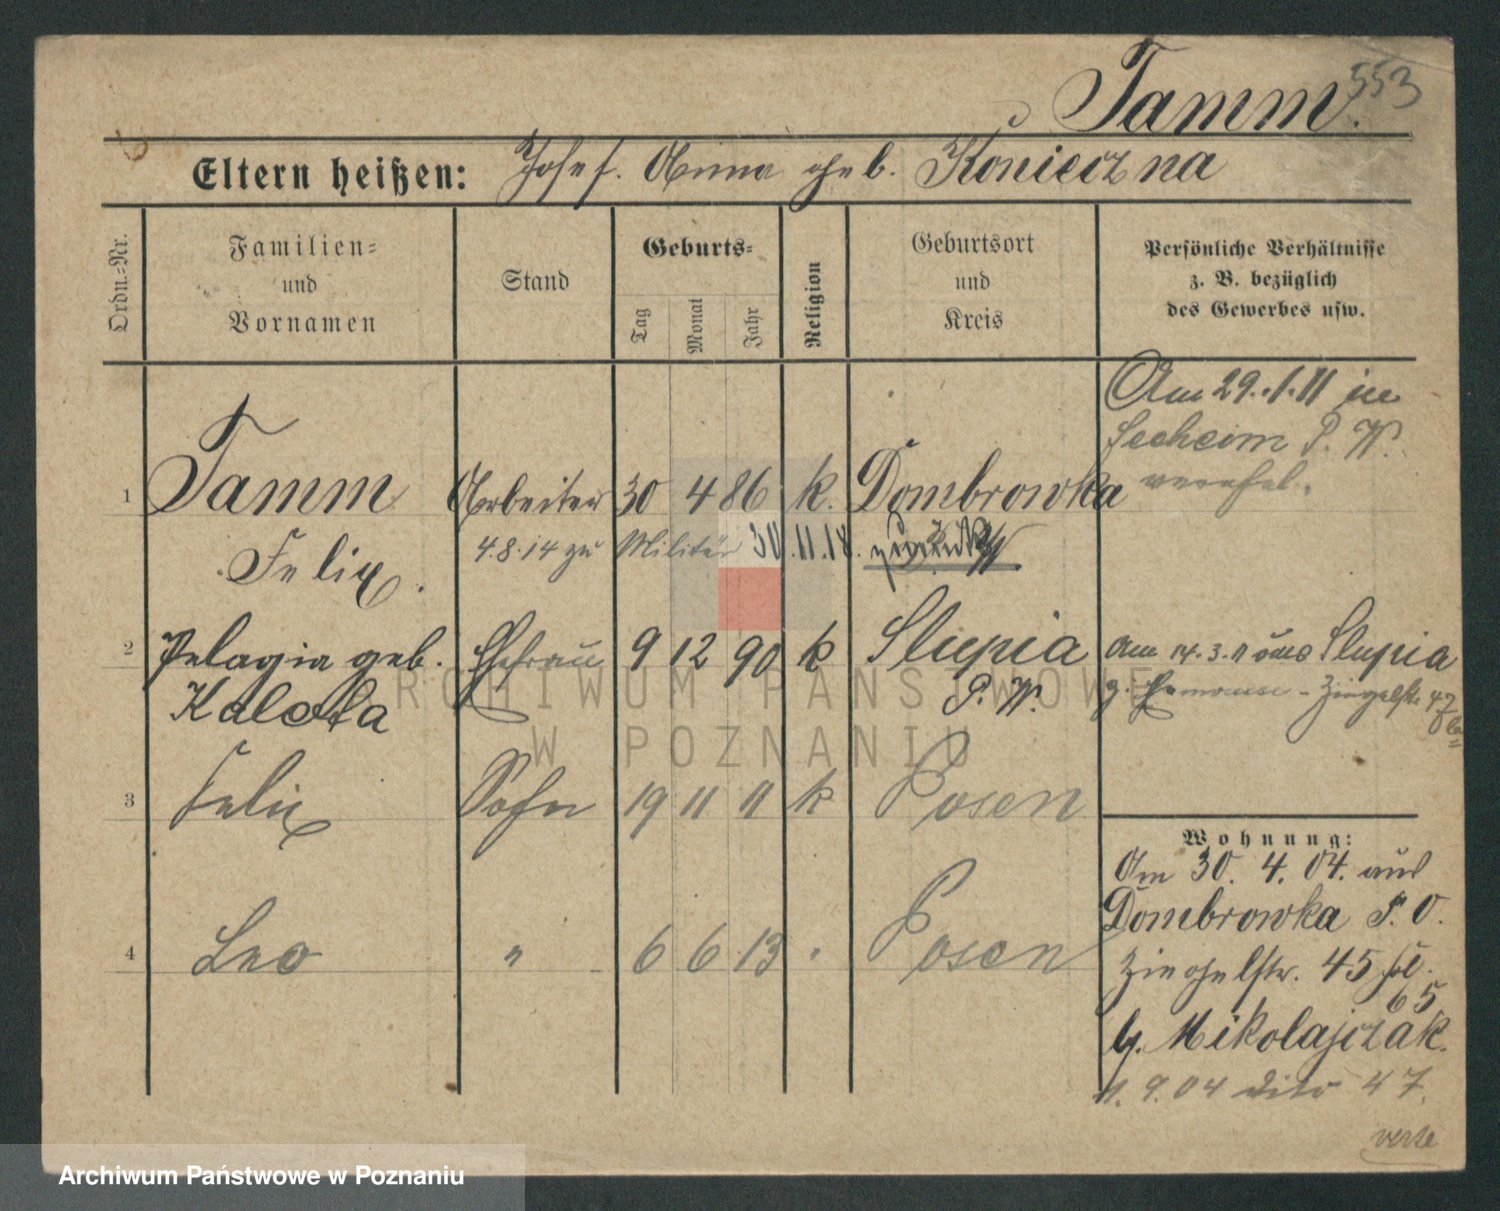 553
Tamm.
Eltern heißen: Josef. Anna geb. Konieczna
Ordn.=Nr.
Familien=
und
Vornamen
Stand
Geburts=
Tag
Monat
Jahr
Religion
Geburtsort
und
Kreis
Persönliche Verhältnisse
z. B. bezüglich
des Gewerbes usw.
Am 29.1.11 in
Seeheim P. W.
verehel.
1 Tamm Arbeiter 30 4 86 k. Dombrowka
Felix. 4.8.14 zu Militär 30.11.18. zurück
2 Pelagia geb. Ehefrau 9 12 90 k Slupia
Kaleta P. W.
am 14.3.11 aus Slupia
Ziegelstr. 47
3 Felix Sohn 19 11 11 k Posen
4 Leo " 6 6 13 " Posen
Wohnung:
Am 30. 4. 04. aus
Dombrowka P. O.
Ziegelstr. 45
65
b. Mikolajczak.
1. 9. 04 dito 47.
verte
ARCHIWUM PAŃSTWOWE
W POZNANIU
Archiwum Państwowe w Poznaniu